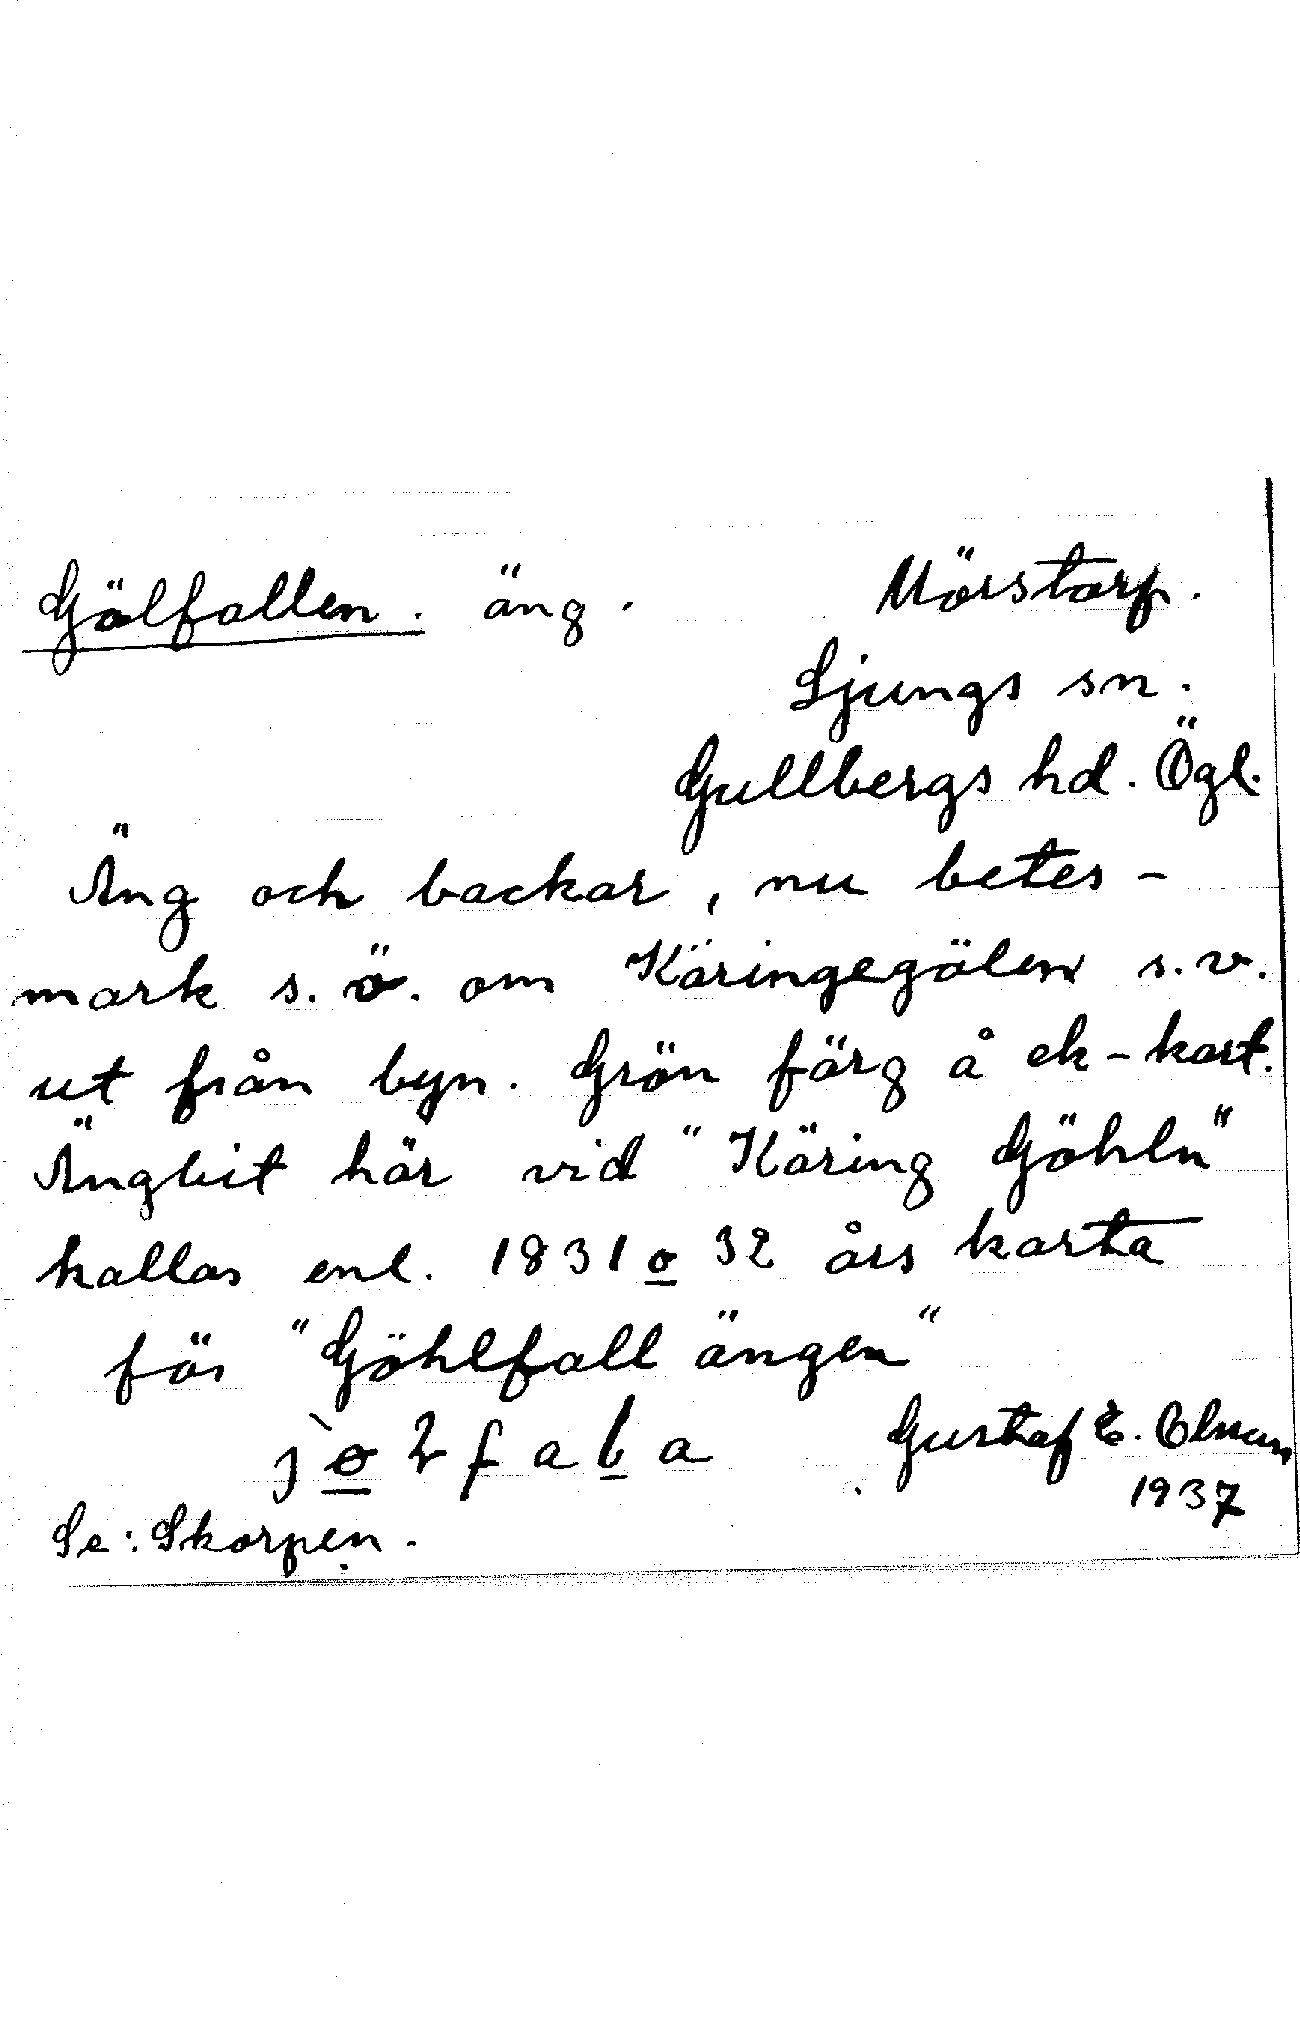 Gölfallen. äng. Mörstorp.
Ljungs sn.
Gullbergs hd. Ögl.
Äng och backar, nu betes-
mark s. ö. om Käringegölen s.v.
ut från byn. Grön färg å ek-kart.
Ängbit här vid "Käring Göhln"
kallas enl. 1831 o 32 års karta
för "Göhlfall ängen"
Gustaf E.
1937
Se: Skorpen.